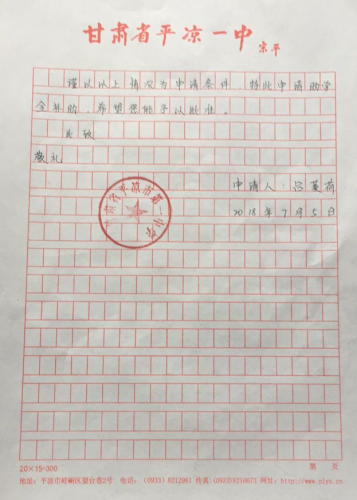 甘肃省平凉一中
宗平
谨以以上情况为申请条件,特此申请助学
金补助,希望您能予以批准。
此致
敬礼
申请人:吕蔓荷
2018年7月5日
甘肃省平凉市第一中学
20×15=300
第 页
地址:平凉市崆峒区盘旋巷2号 电话:(0933)8212961 传真:(0933)8210671 网址:http://www.plyz.cn